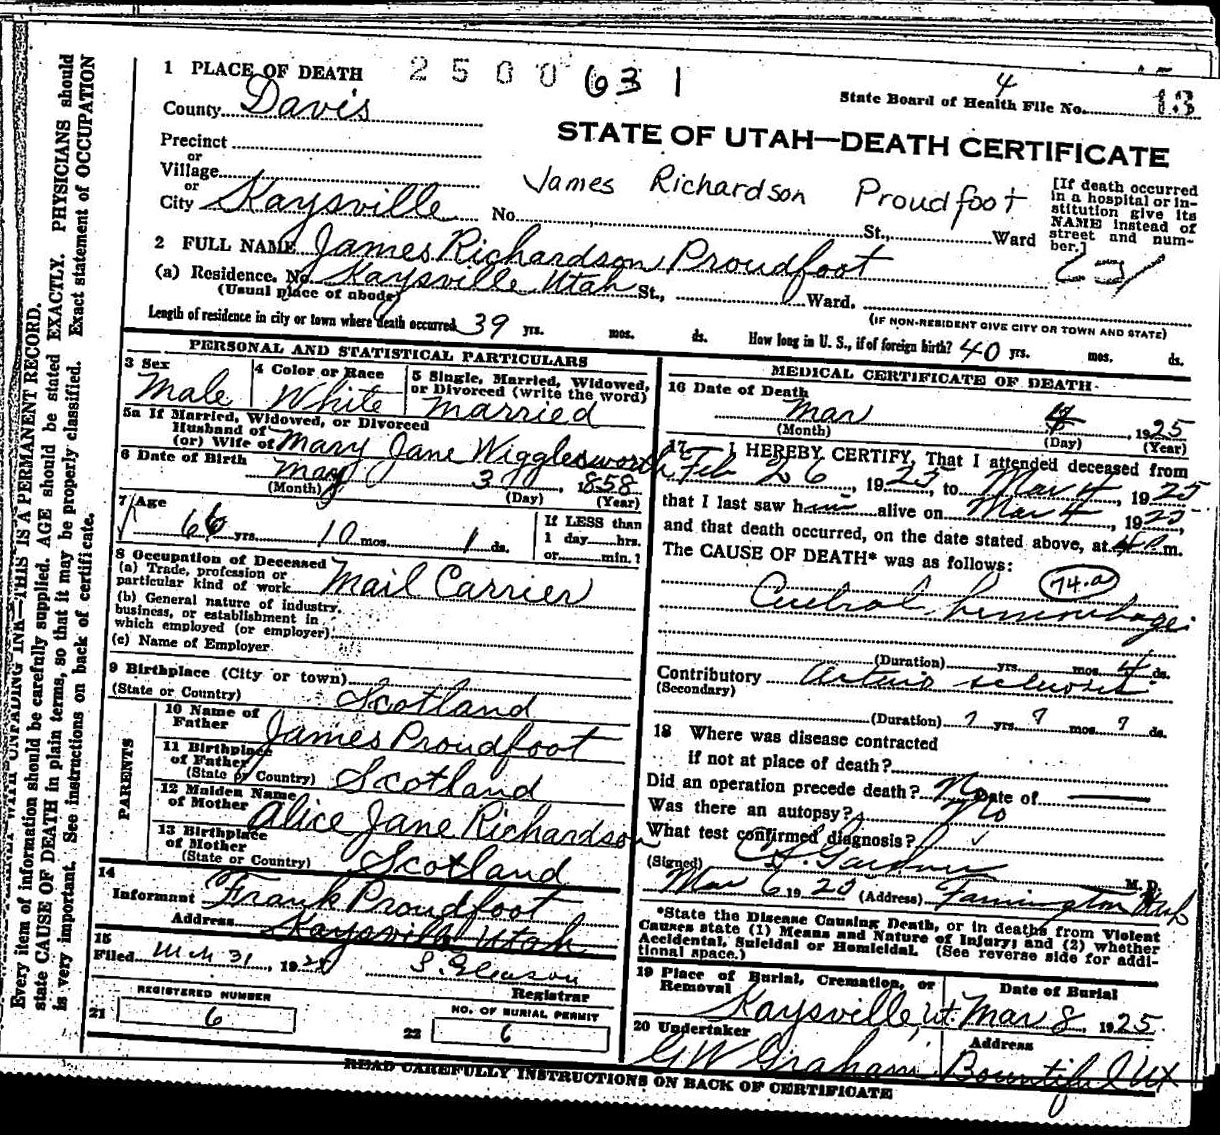 1 PLACE OF DEATH 2500 631
State Board of Health File No. 4 13
County Davis
STATE OF UTAH—DEATH CERTIFICATE
Precinct
or
Village
or
City Kaysville No. St., Ward
James Richardson Proudfoot
[If death occurred
in a hospital or in-
stitution give its
NAME instead of
street and num-
ber.]
2 FULL NAME James Richardson Proudfoot
(a) Residence. No. Kaysville Utah St., Ward.
(Usual place of abode)
(IF NON-RESIDENT GIVE CITY OR TOWN AND STATE)
Length of residence in city or town where death occurred 39 yrs. mos. ds. How long in U. S., if of foreign birth? 40 yrs. mos. ds.
PERSONAL AND STATISTICAL PARTICULARS
3 Sex Male
4 Color or Race White
5 Single, Married, Widowed,
or Divorced (write the word)
married
5a If Married, Widowed, or Divorced
Husband of
(or) Wife of Mary Jane Wigglesworth
6 Date of Birth May 3, 1858
(Month) (Day) (Year)
7 Age 66 yrs. 10 mos. 1 ds.
If LESS than
1 day hrs.
or min.?
8 Occupation of Deceased
(a) Trade, profession or
particular kind of work Mail Carrier
(b) General nature of industry,
business, or establishment in
which employed (or employer)
(c) Name of Employer
9 Birthplace (City or town)
(State or Country) Scotland
PARENTS
10 Name of
Father James Proudfoot
11 Birthplace
of Father
(State or Country) Scotland
12 Maiden Name
of Mother Alice Jane Richardson
13 Birthplace
of Mother
(State or Country) Scotland
14
Informant Frank Proudfoot
Address Kaysville Utah
15
Filed Mch 31, 1925 S. Gleason
Registrar
REGISTERED NUMBER
21 6
NO. OF BURIAL PERMIT
22 6
MEDICAL CERTIFICATE OF DEATH
16 Date of Death
Mar 4, 1925
(Month) (Day) (Year)
17 I HEREBY CERTIFY, That I attended deceased from
Feb 26, 1925, to Mar 4, 1925
that I last saw him alive on Mar 4, 1925,
and that death occurred, on the date stated above, at 4 P.m.
The CAUSE OF DEATH* was as follows:
74-a
Cerebral hemorrhage
(Duration) yrs. mos. 4 ds.
Contributory Arterio sclerosis
(Secondary)
(Duration) ? yrs. ? mos. ? ds.
18 Where was disease contracted
if not at place of death?
Did an operation precede death? No Date of
Was there an autopsy? No
What test confirmed diagnosis?
(Signed) Gardner M. D.
Mar 6, 1925 (Address) Farmington Utah
*State the Disease Causing Death, or in deaths from Violent
Causes state (1) Means and Nature of Injury; and (2) whether
Accidental, Suicidal or Homicidal. (See reverse side for addi-
tional space.)
19 Place of Burial, Cremation, or
Removal Kaysville, Ut.
Date of Burial
Mar 8, 1925
20 Undertaker
G W Graham
Address
Bountiful Ut
READ CAREFULLY INSTRUCTIONS ON BACK OF CERTIFICATE
Every item of information should be carefully supplied. AGE should be stated EXACTLY. PHYSICIANS should
state CAUSE OF DEATH in plain terms, so that it may be properly classified. Exact statement of OCCUPATION
is very important. See instructions on back of certificate.
WITH UNFADING INK—THIS IS A PERMANENT RECORD.